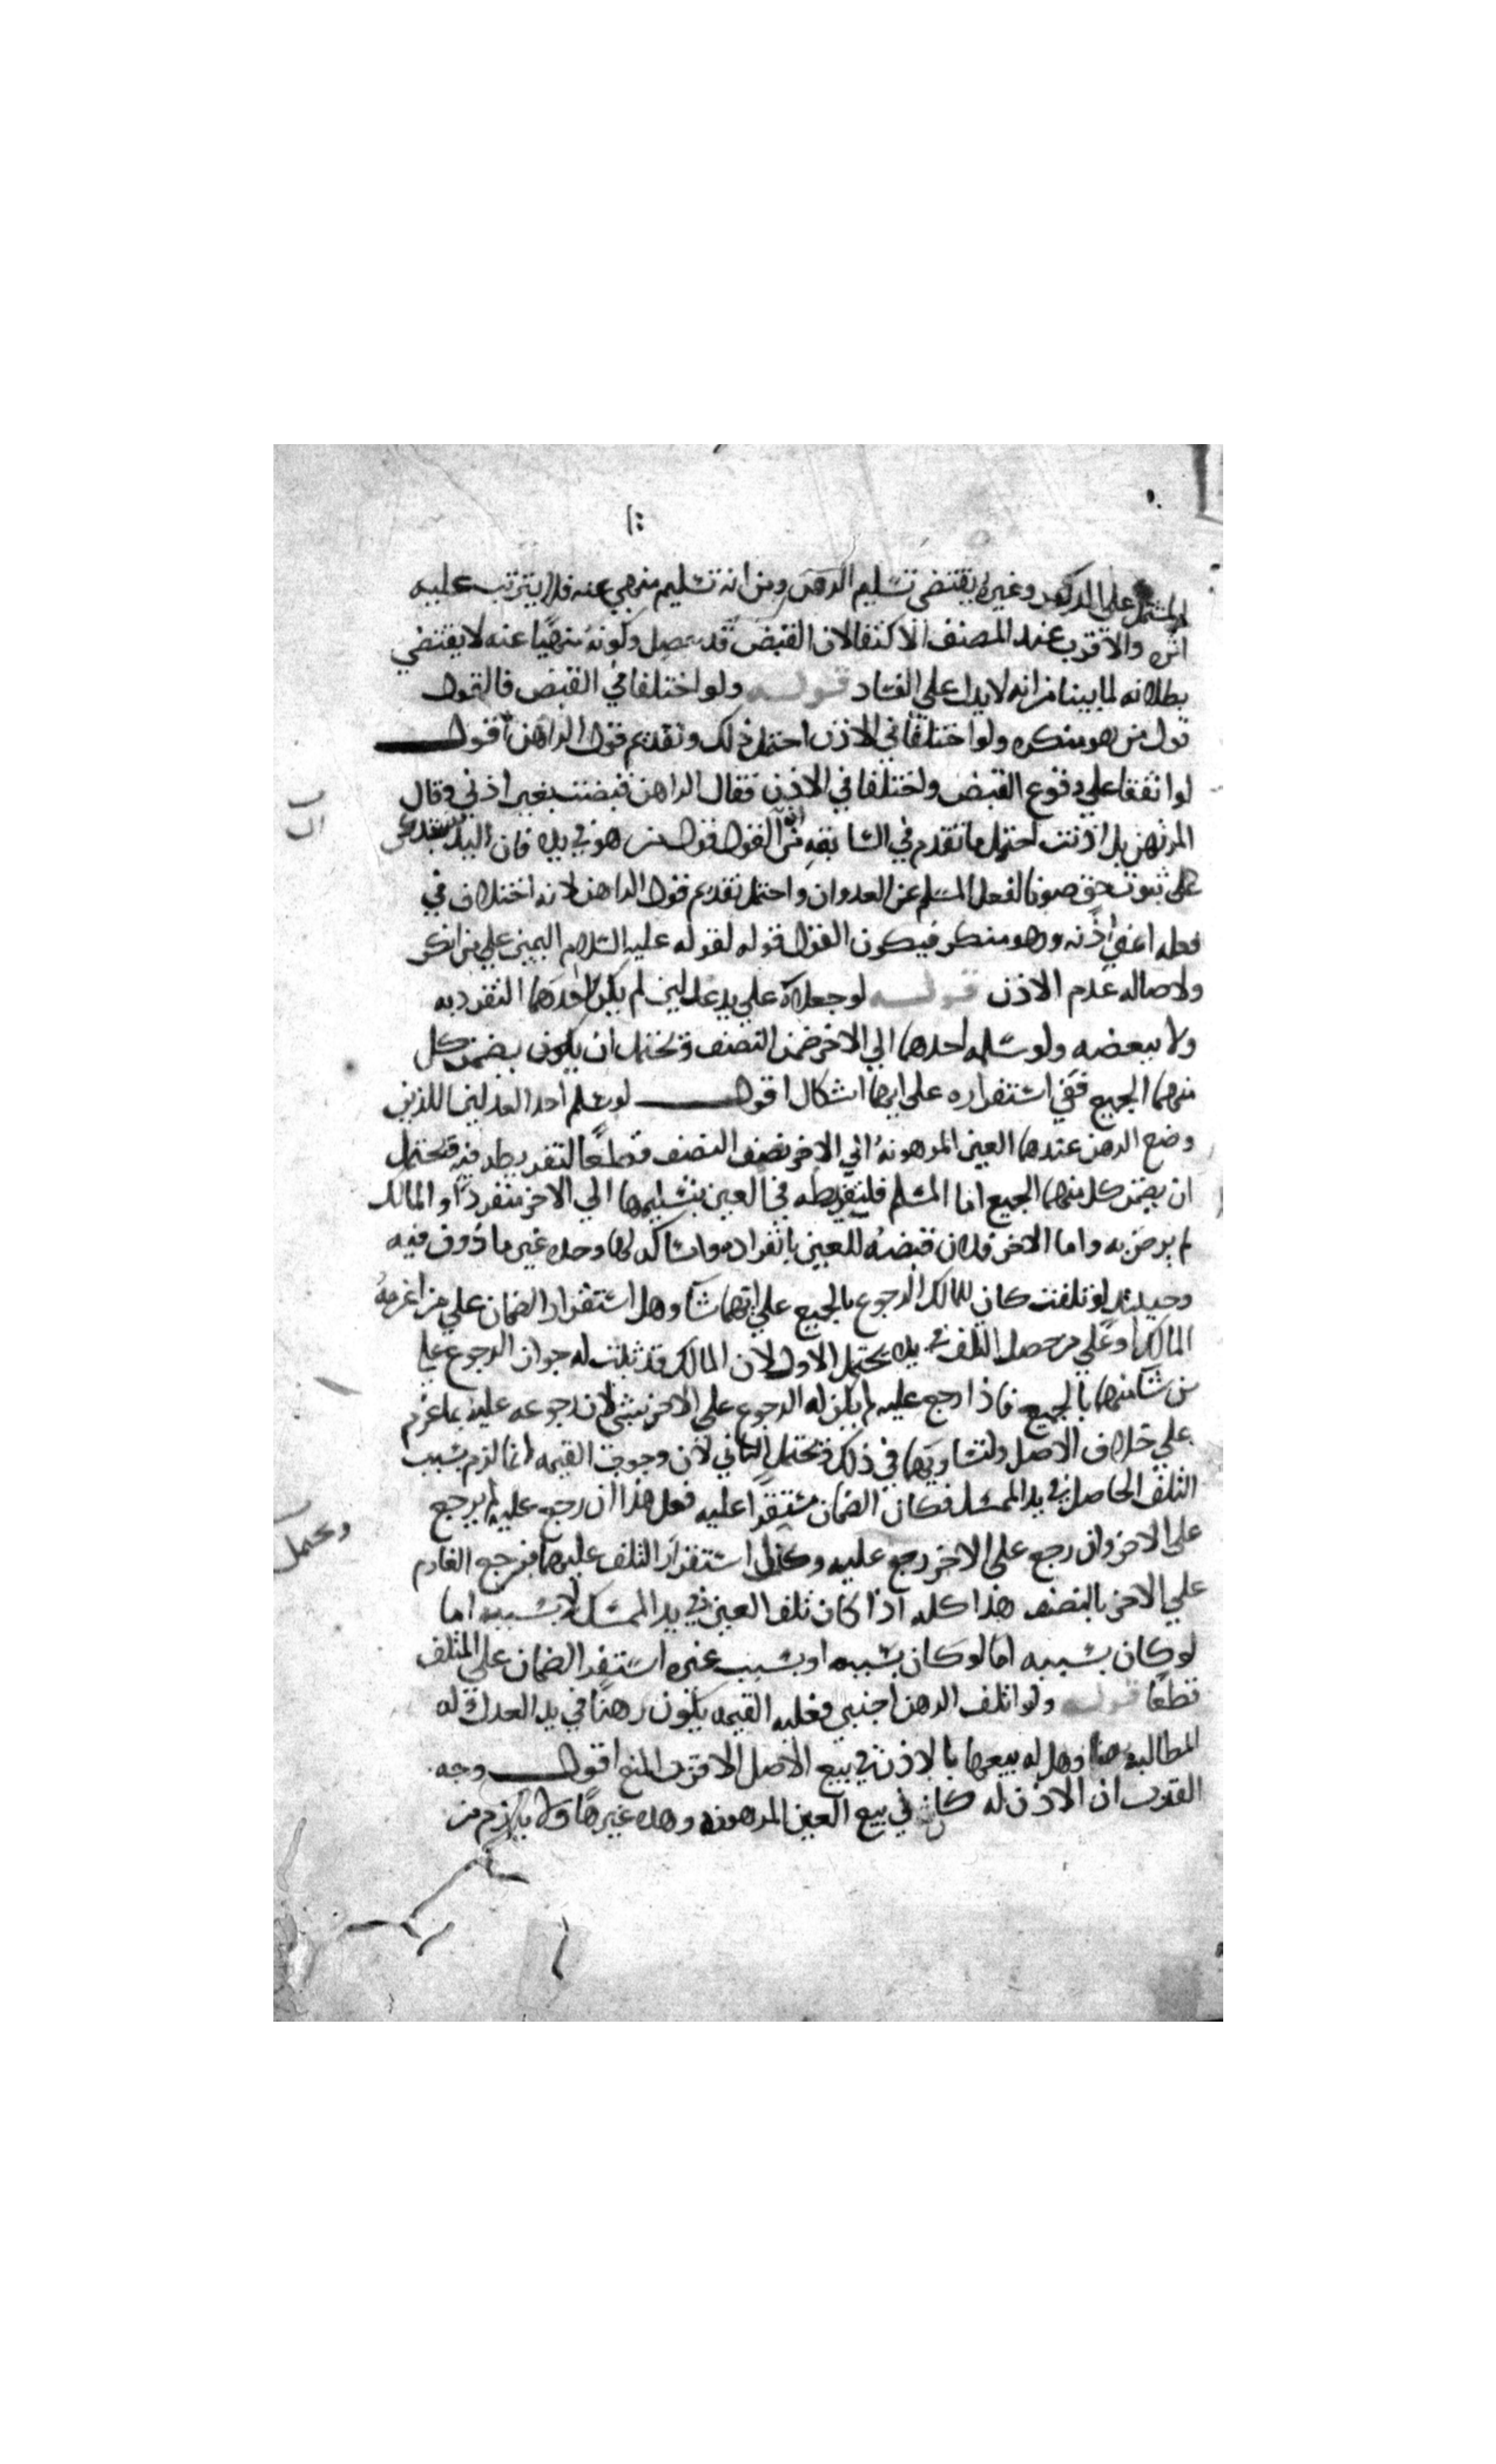 المشتمل على الرهن وغيره يقتضي تسليم الرهن ومن انه تسليم منهي عنه فلا يترتب عليه
اثره والاقرب عند المصنف الاكتفا لان القبض قد حصل وكونه منهيا عنه لا يقتضي
بطلانه لما بينا من انه لا يدل على الفساد قوله ولو اختلفا في القبض فالقول
قول من هو منكره ولو اختلفا في الاذن احتمل ذلك وتقديم قول الراهن اقول
لو اتفقا علي وقوع القبض واختلفا في الاذن فقال الراهن قبضت بغير اذني وقال
المرتهن بل اذنت احتمل ما تقدم في السابقه من ان القول قول من هو في يده فان اليد
على ثبوت حق صونا لفعل المسلم عن العدوان واحتمل تقديم قول الراهن لانه اختلاف في
فعله اعني اذنه وهو منكر فيكون القول قوله لقوله عليه السلام اليمين علي من انكر
ولاصاله عدم الاذن قوله لو جعلاه علي يد عدلين لم يكن لاحدهما التفرد به
ولا ببعضه ولو سلمه احدهما الي الاخر ضمن النصف ويحتمل ان يكون يضمن كل
منهما الجميع ففي استقراره على ايهما اشكال اقول لو سلم احد العدلين اللذين
وضع الرهن عندهما العين المرهونة الي الاخر النصف قطعا لتفريطه فيه فيحتمل
ان يضمن كل منهما الجميع اما المسلم فلتفريطه في العين بتسليمها الي الاخر منفردا والمالك
لم يرض به واما الاخر فلان قبضه للعين بانفراده وامساكه لها وحده غير ماذون فيه
وحينئذ لو تلفت كان للمالك الرجوع بالجميع علي ايهما شا وهل استقرار الضمان علي من اغرمه
المالك او علي من حصل التلف في يده يحتمل الاول لان المالك قد ثبت له جواز الرجوع علي
من شا منهما بالجميع فاذا رجع عليه لم يكن له الرجوع على الاخر بشي لان رجوعه عليه بما غرم
علي خلاف الاصل ولتساويهما في ذلك ويحتمل الثاني لان وجوب القيمه انما لزم بسبب
التلف الحاصل في يد الممسك فكان الضمان مستقرا عليه فعل هذا ان رجع عليه لم يرجع
على الاخر وان رجع على الاخر رجع عليه ويحتمل استقرار التلف عليهما فيرجع الغارم
علي الاخر بالنصف هذا كله اذا كان تلف العين في يد الممسك لا بسببه اما
لو كان بسببه اما لو كان بسببه او بسبب غيره استقر الضمان على المتلف
قطعا قوله ولو اتلف الرهن اجنبي فعليه القيمه يكون رهنا في يد العدل وله
المطالبة بها وهل له بيعها بالاذن في بيع الاصل الاقرب المنع اقول وجه
القرب ان الاذن له كان في بيع العين المرهونه وهذه غيرها ولا يلزم من
ويحتمل